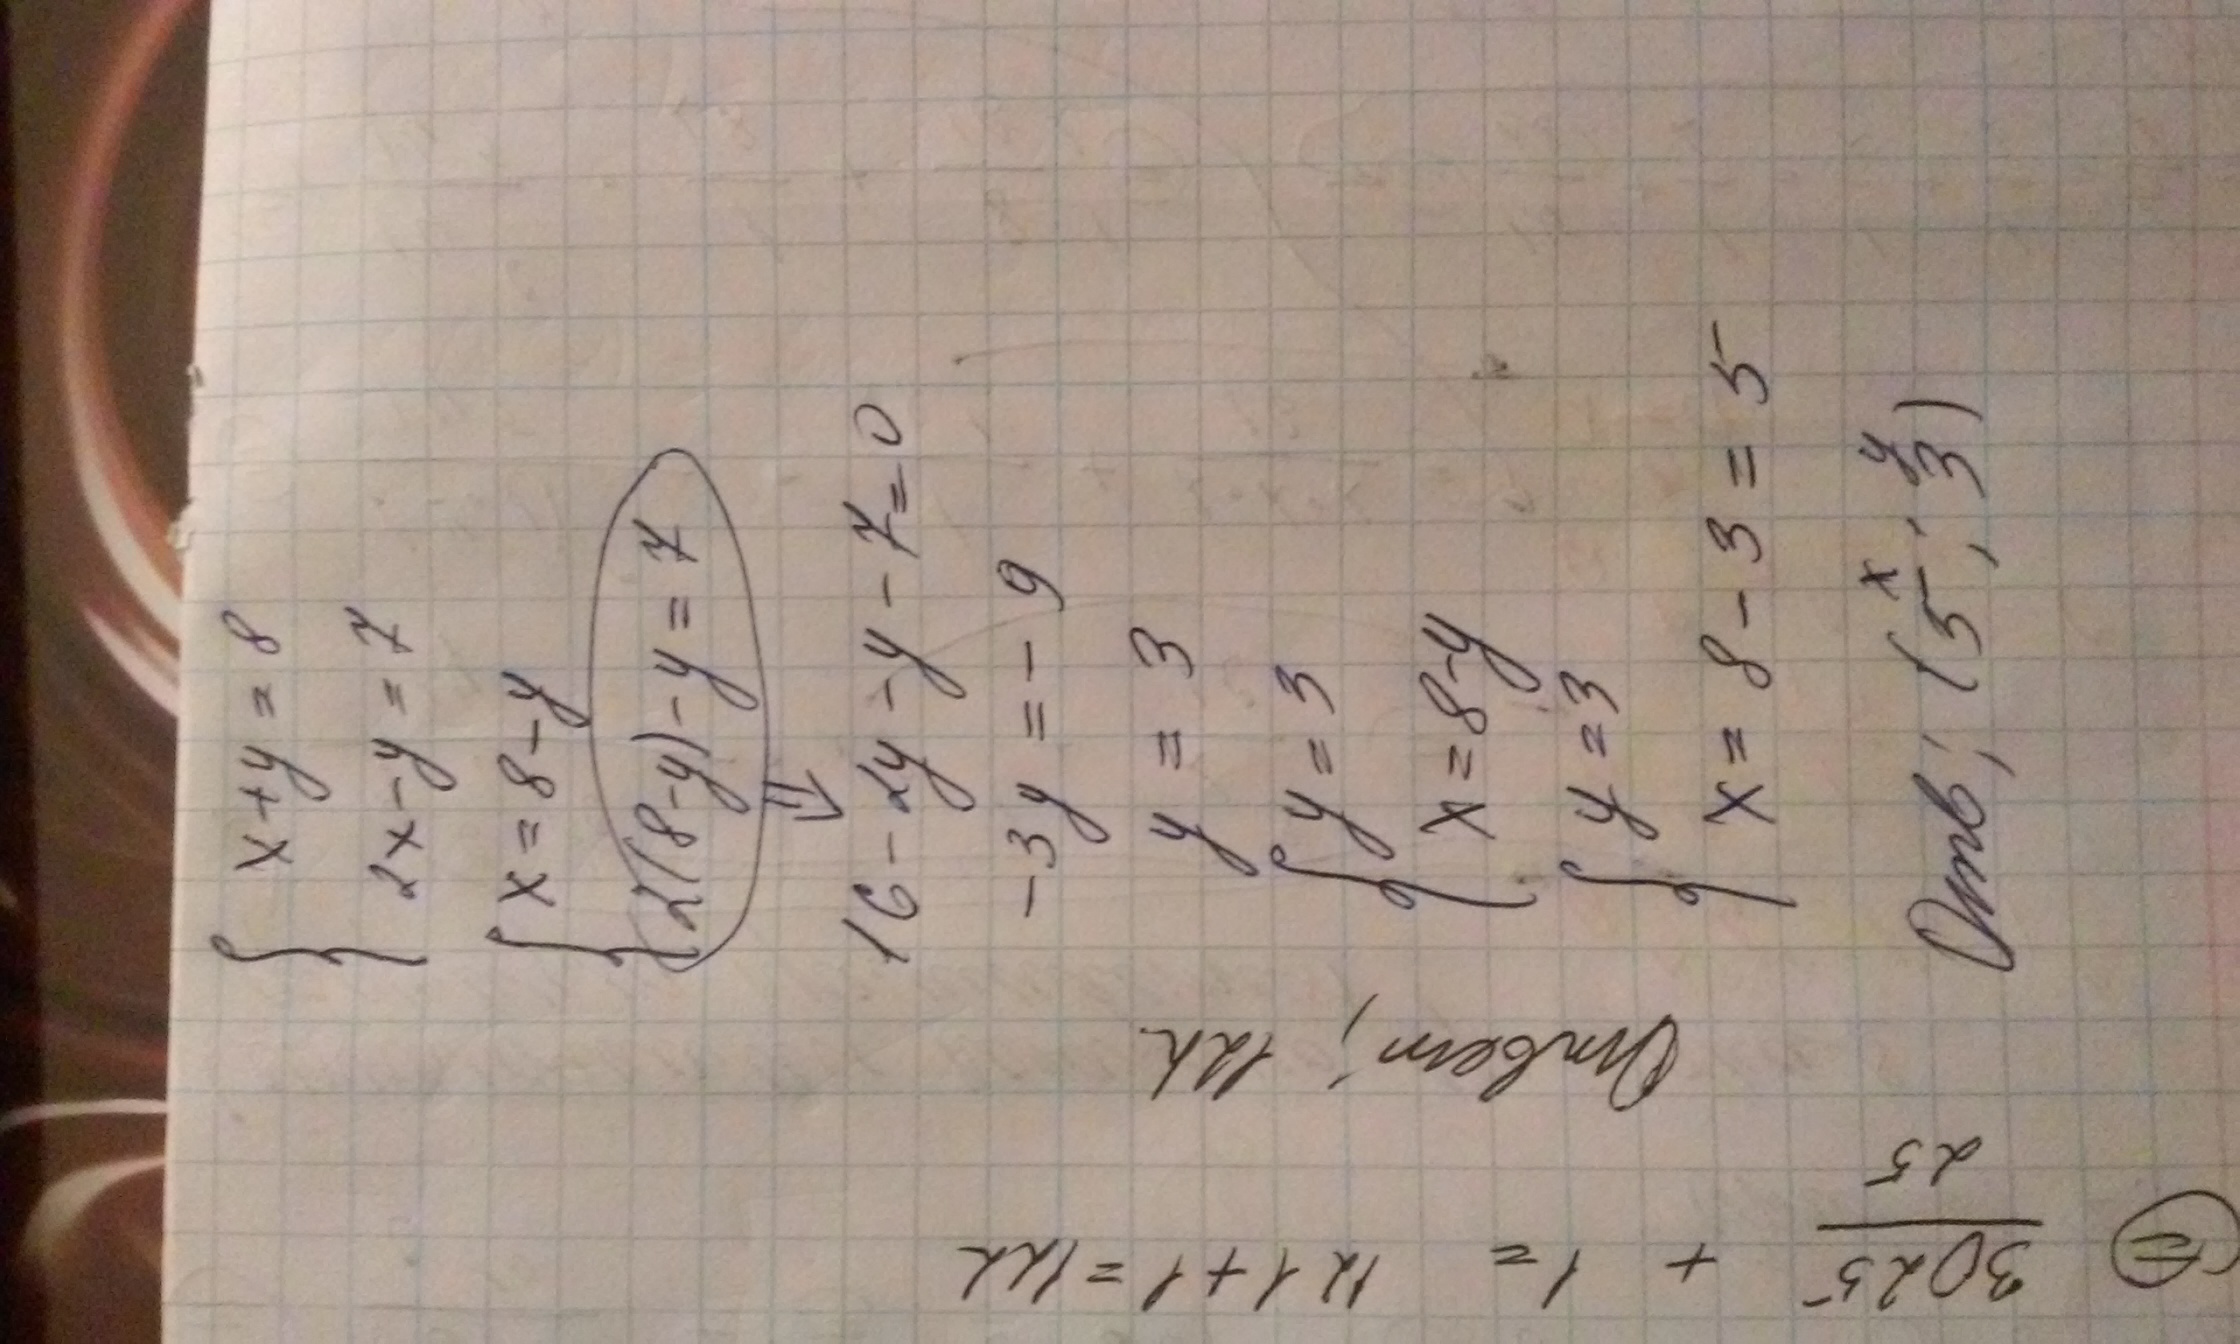 { x+y=8
2x-y=7
{ x=8-y
2(8-y)-y=7
⇓
16-2y-y-7=0
-3y=-9
y=3
{ y=3
x=8-y
{ y=3
x=8-3=5
x y
Отв; (5; 3)
⊜ 3025/25 + 1 = 121+1=122
Ответ; 122